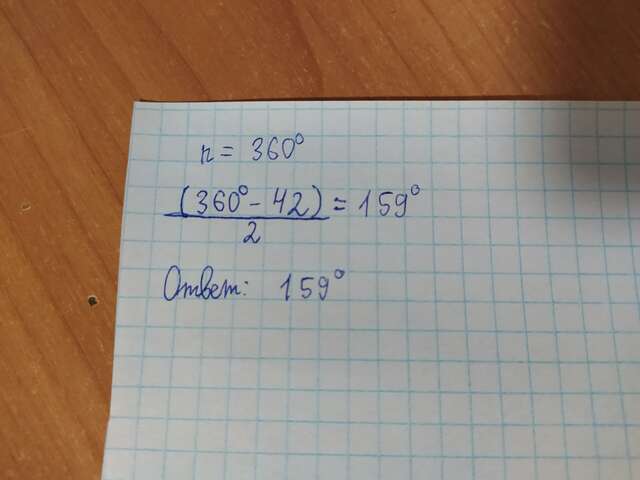 n = 360°
(360° - 42) = 159°
2
Ответ: 159°